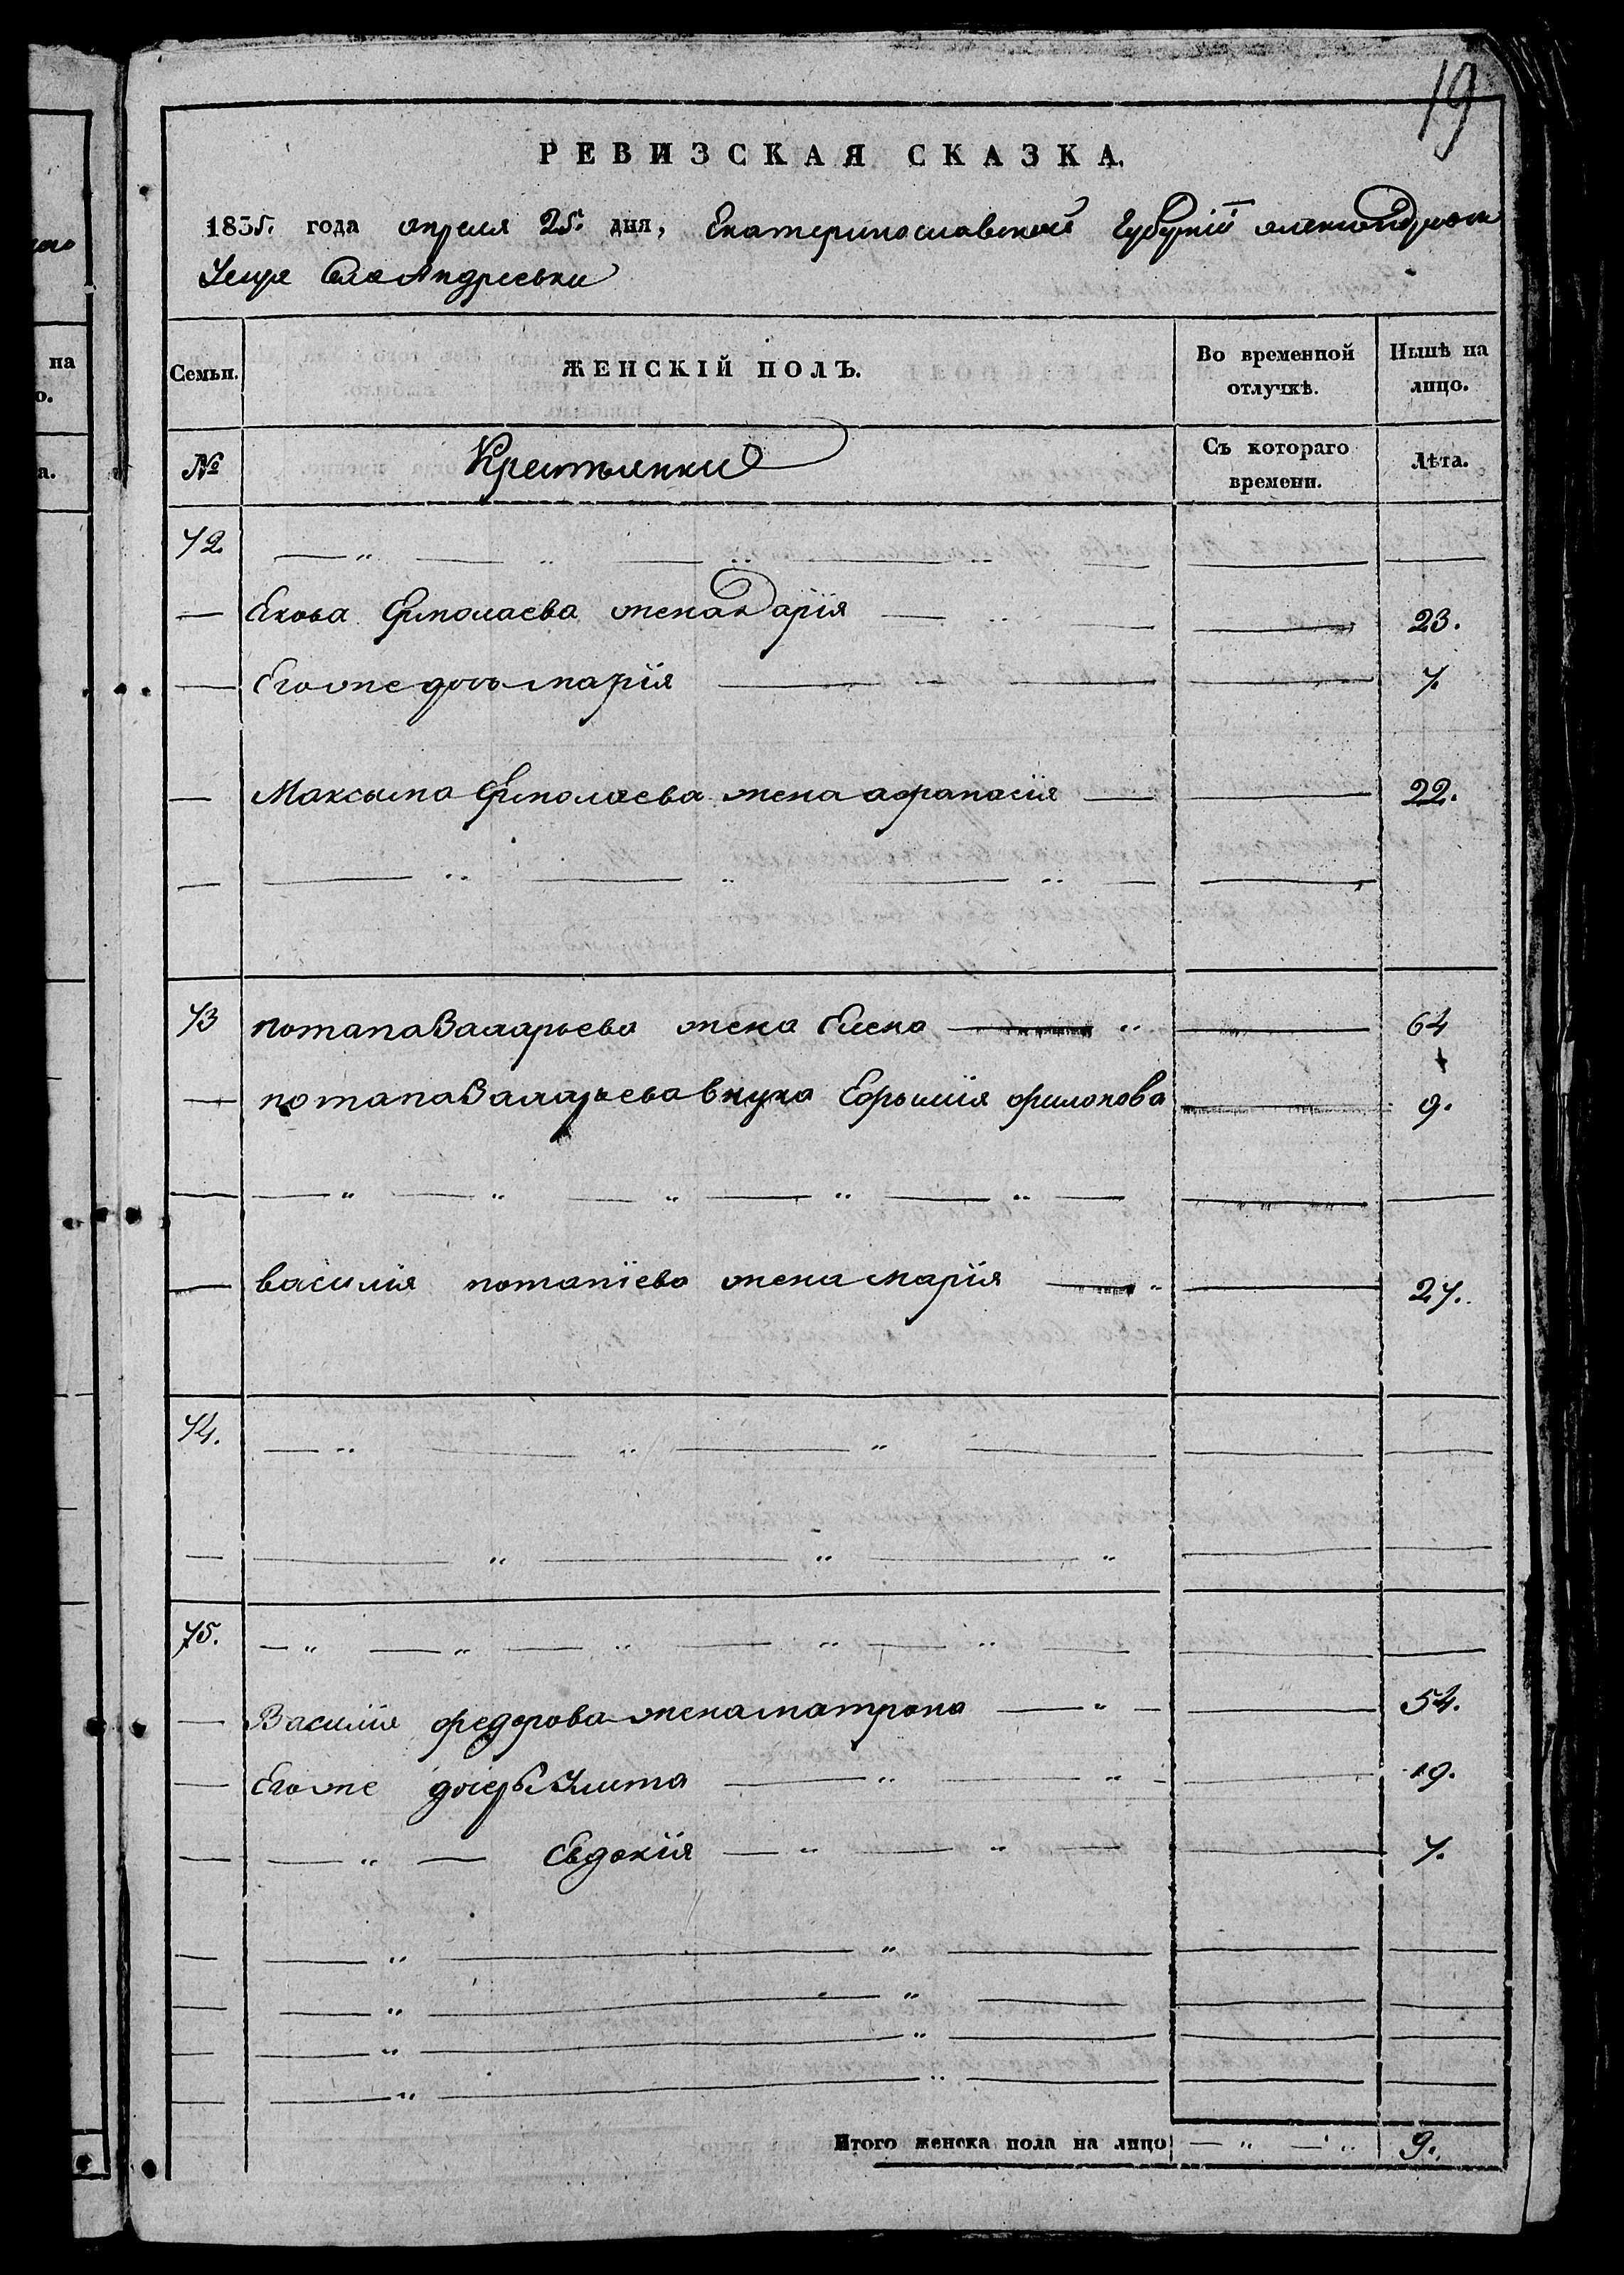 19
РЕВИЗСКАЯ СКАЗКА.
1835. года апреля 25. дня, Екатеринославской Губернїи александриском
Уезда села Андреевки
Семьи. ЖЕНСКІЙ ПОЛЪ. Во временной отлучкѣ. Нынѣ на лицо.
№ Крестьянки Съ котораго времени. Лѣта.
72.
Якова Ермолаева жена дарїя 23.
Его же дочь марїя 7.
Максыма Ермолаева жена афанасїя 22.
73 потапа Валарьева жена Елена 64
потапа Валарьева внука Ефымия филонова 9.
василїя потапїева жена марїя 27.
74.
75.
Василїя федорова жена матрона 54.
Его же дочери Улита 19.
Евдокїя 7.
Итого женска пола на лицо 9.
на
о.
а.